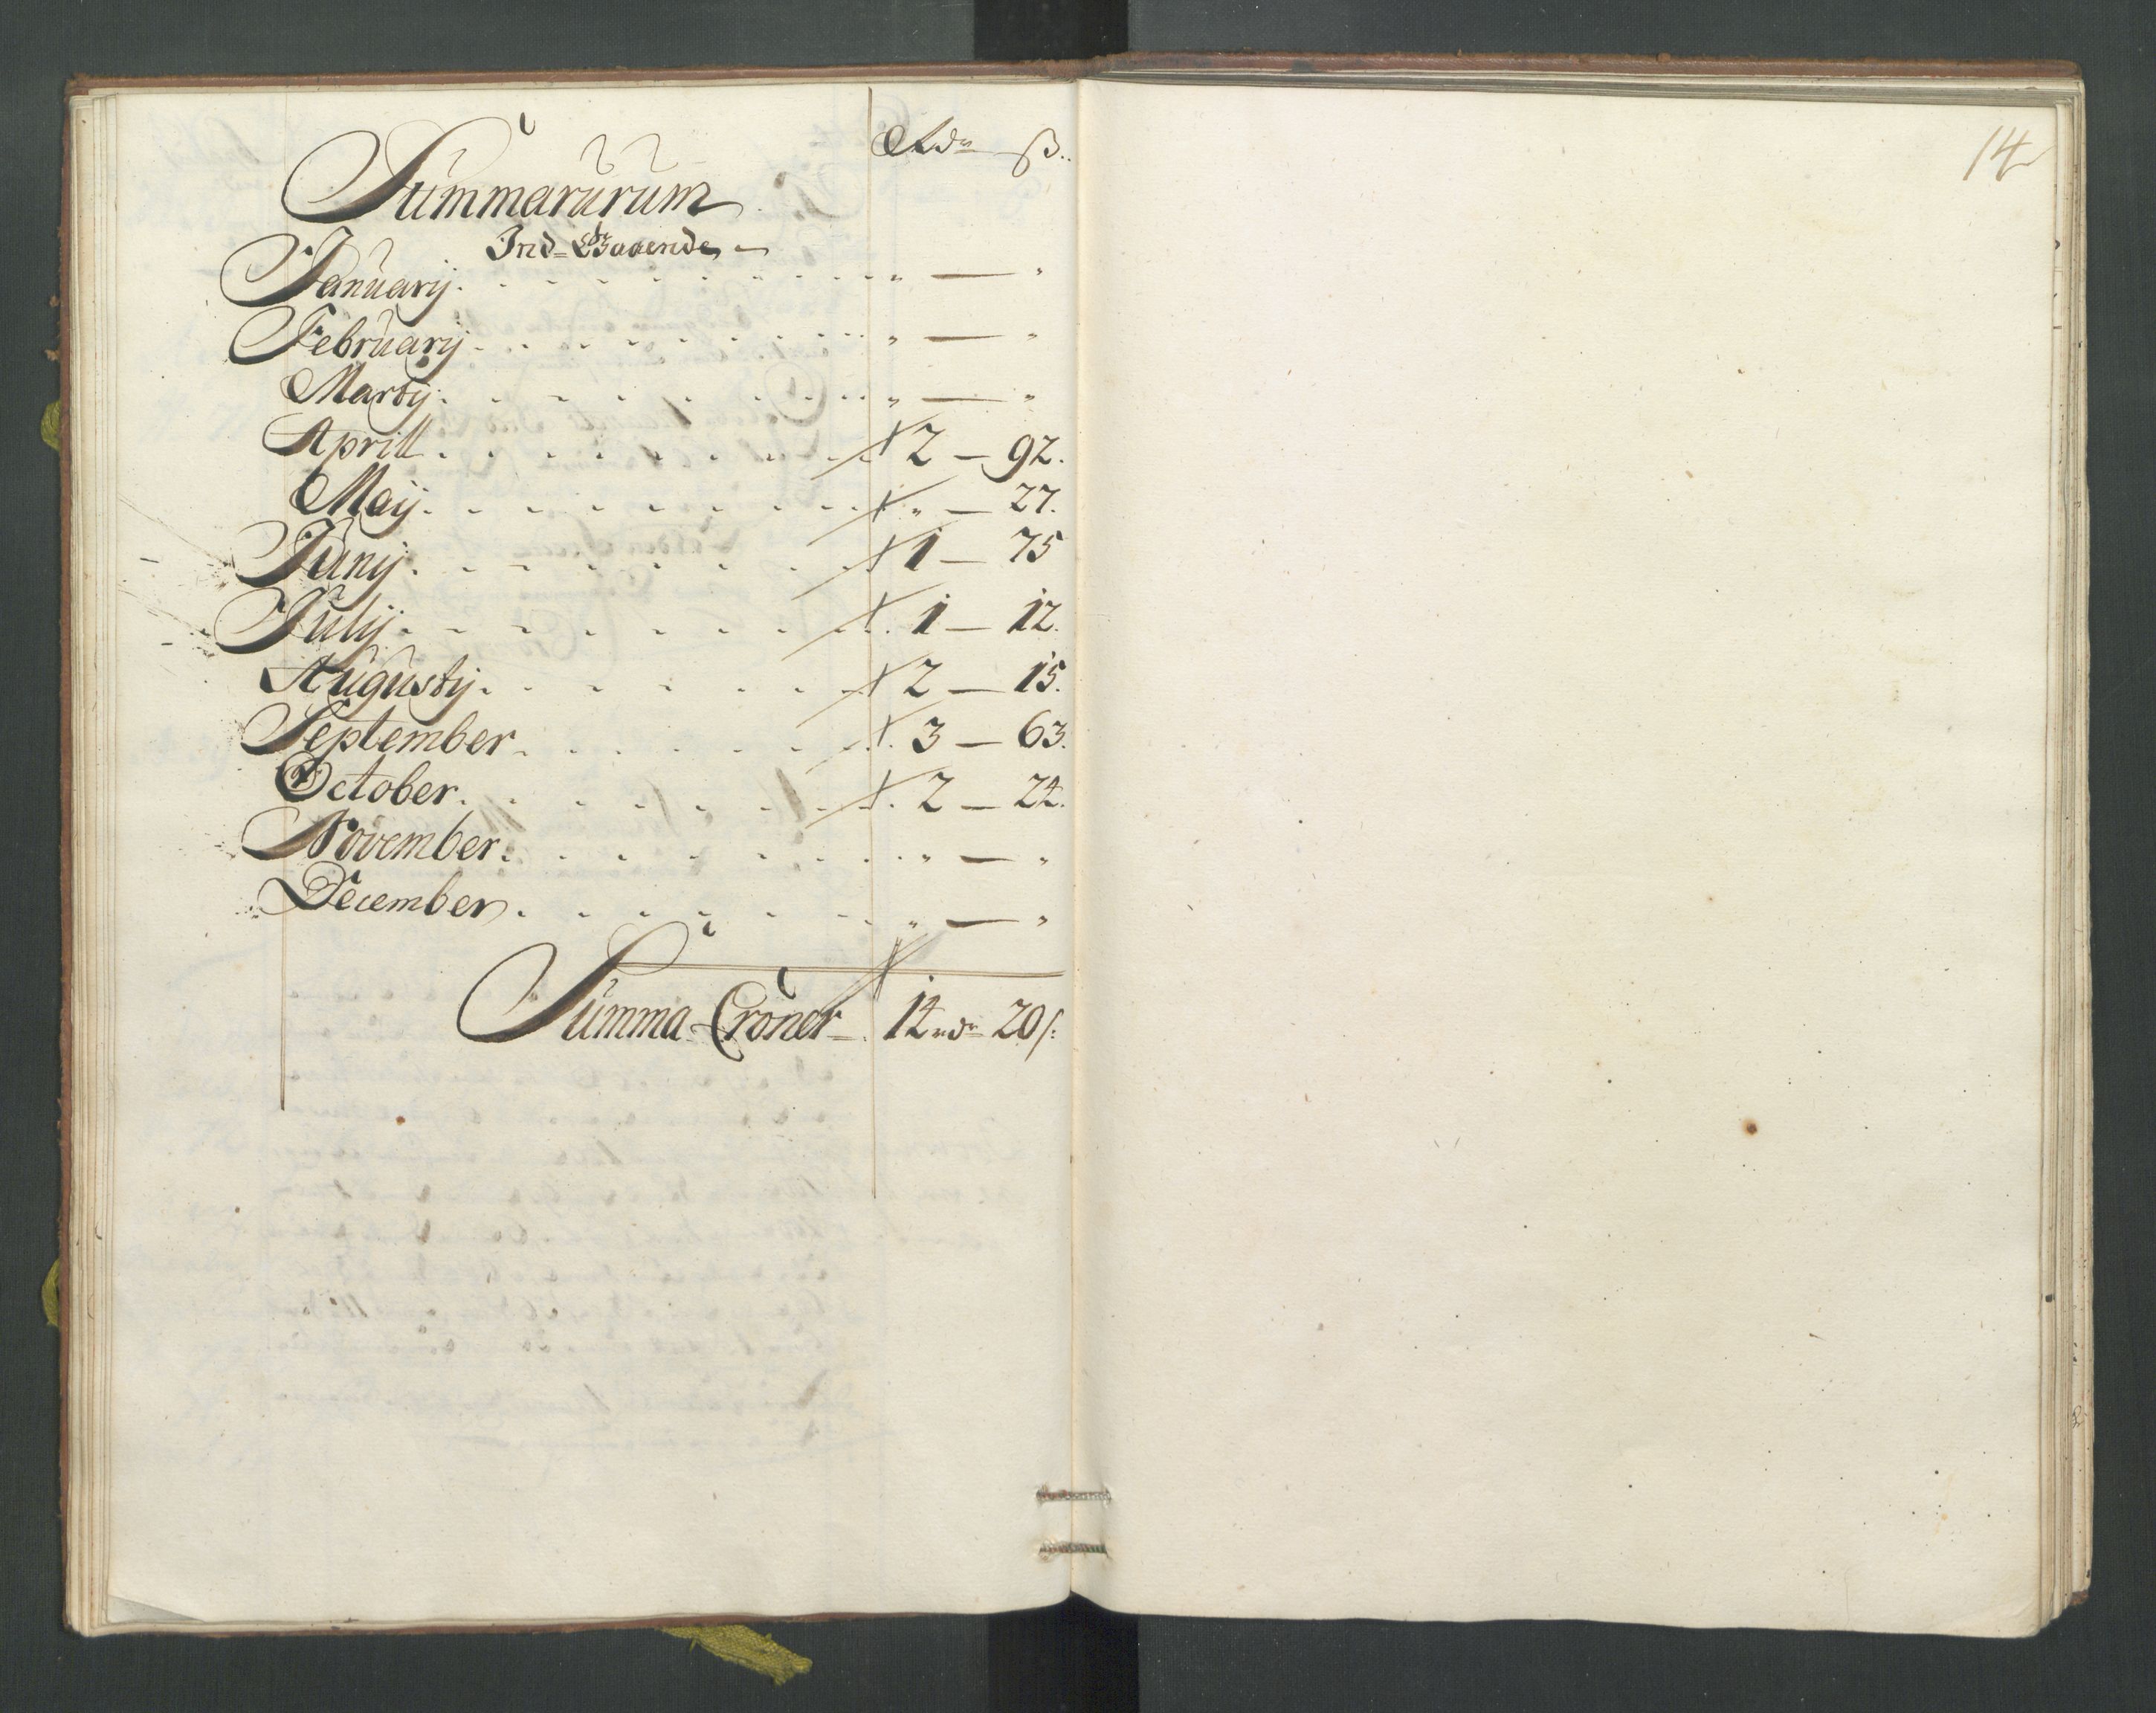 Rdr ß..
Summarurum
Ind=Gaaende -
Januarij . . . . . . . . . " — "
Februarij . . . . . . . . . " — "
Martij . . . . . . . . . " — "
Aprill . . . . . . . . . 2 — 92.
Maij . . . . . . . . . " — 27.
Junij . . . . . . . . . 1 — 75
Julij . . . . . . . . . 1 — 12.
Augustij . . . . . . . . 2 — 15.
September . . . . . . . . 3 — 63.
October . . . . . . . . 2 — 24.
November . . . . . . . . " — "
December . . . . . . . . " — "
Summa Croner = 14 rdr 20 ß:
14